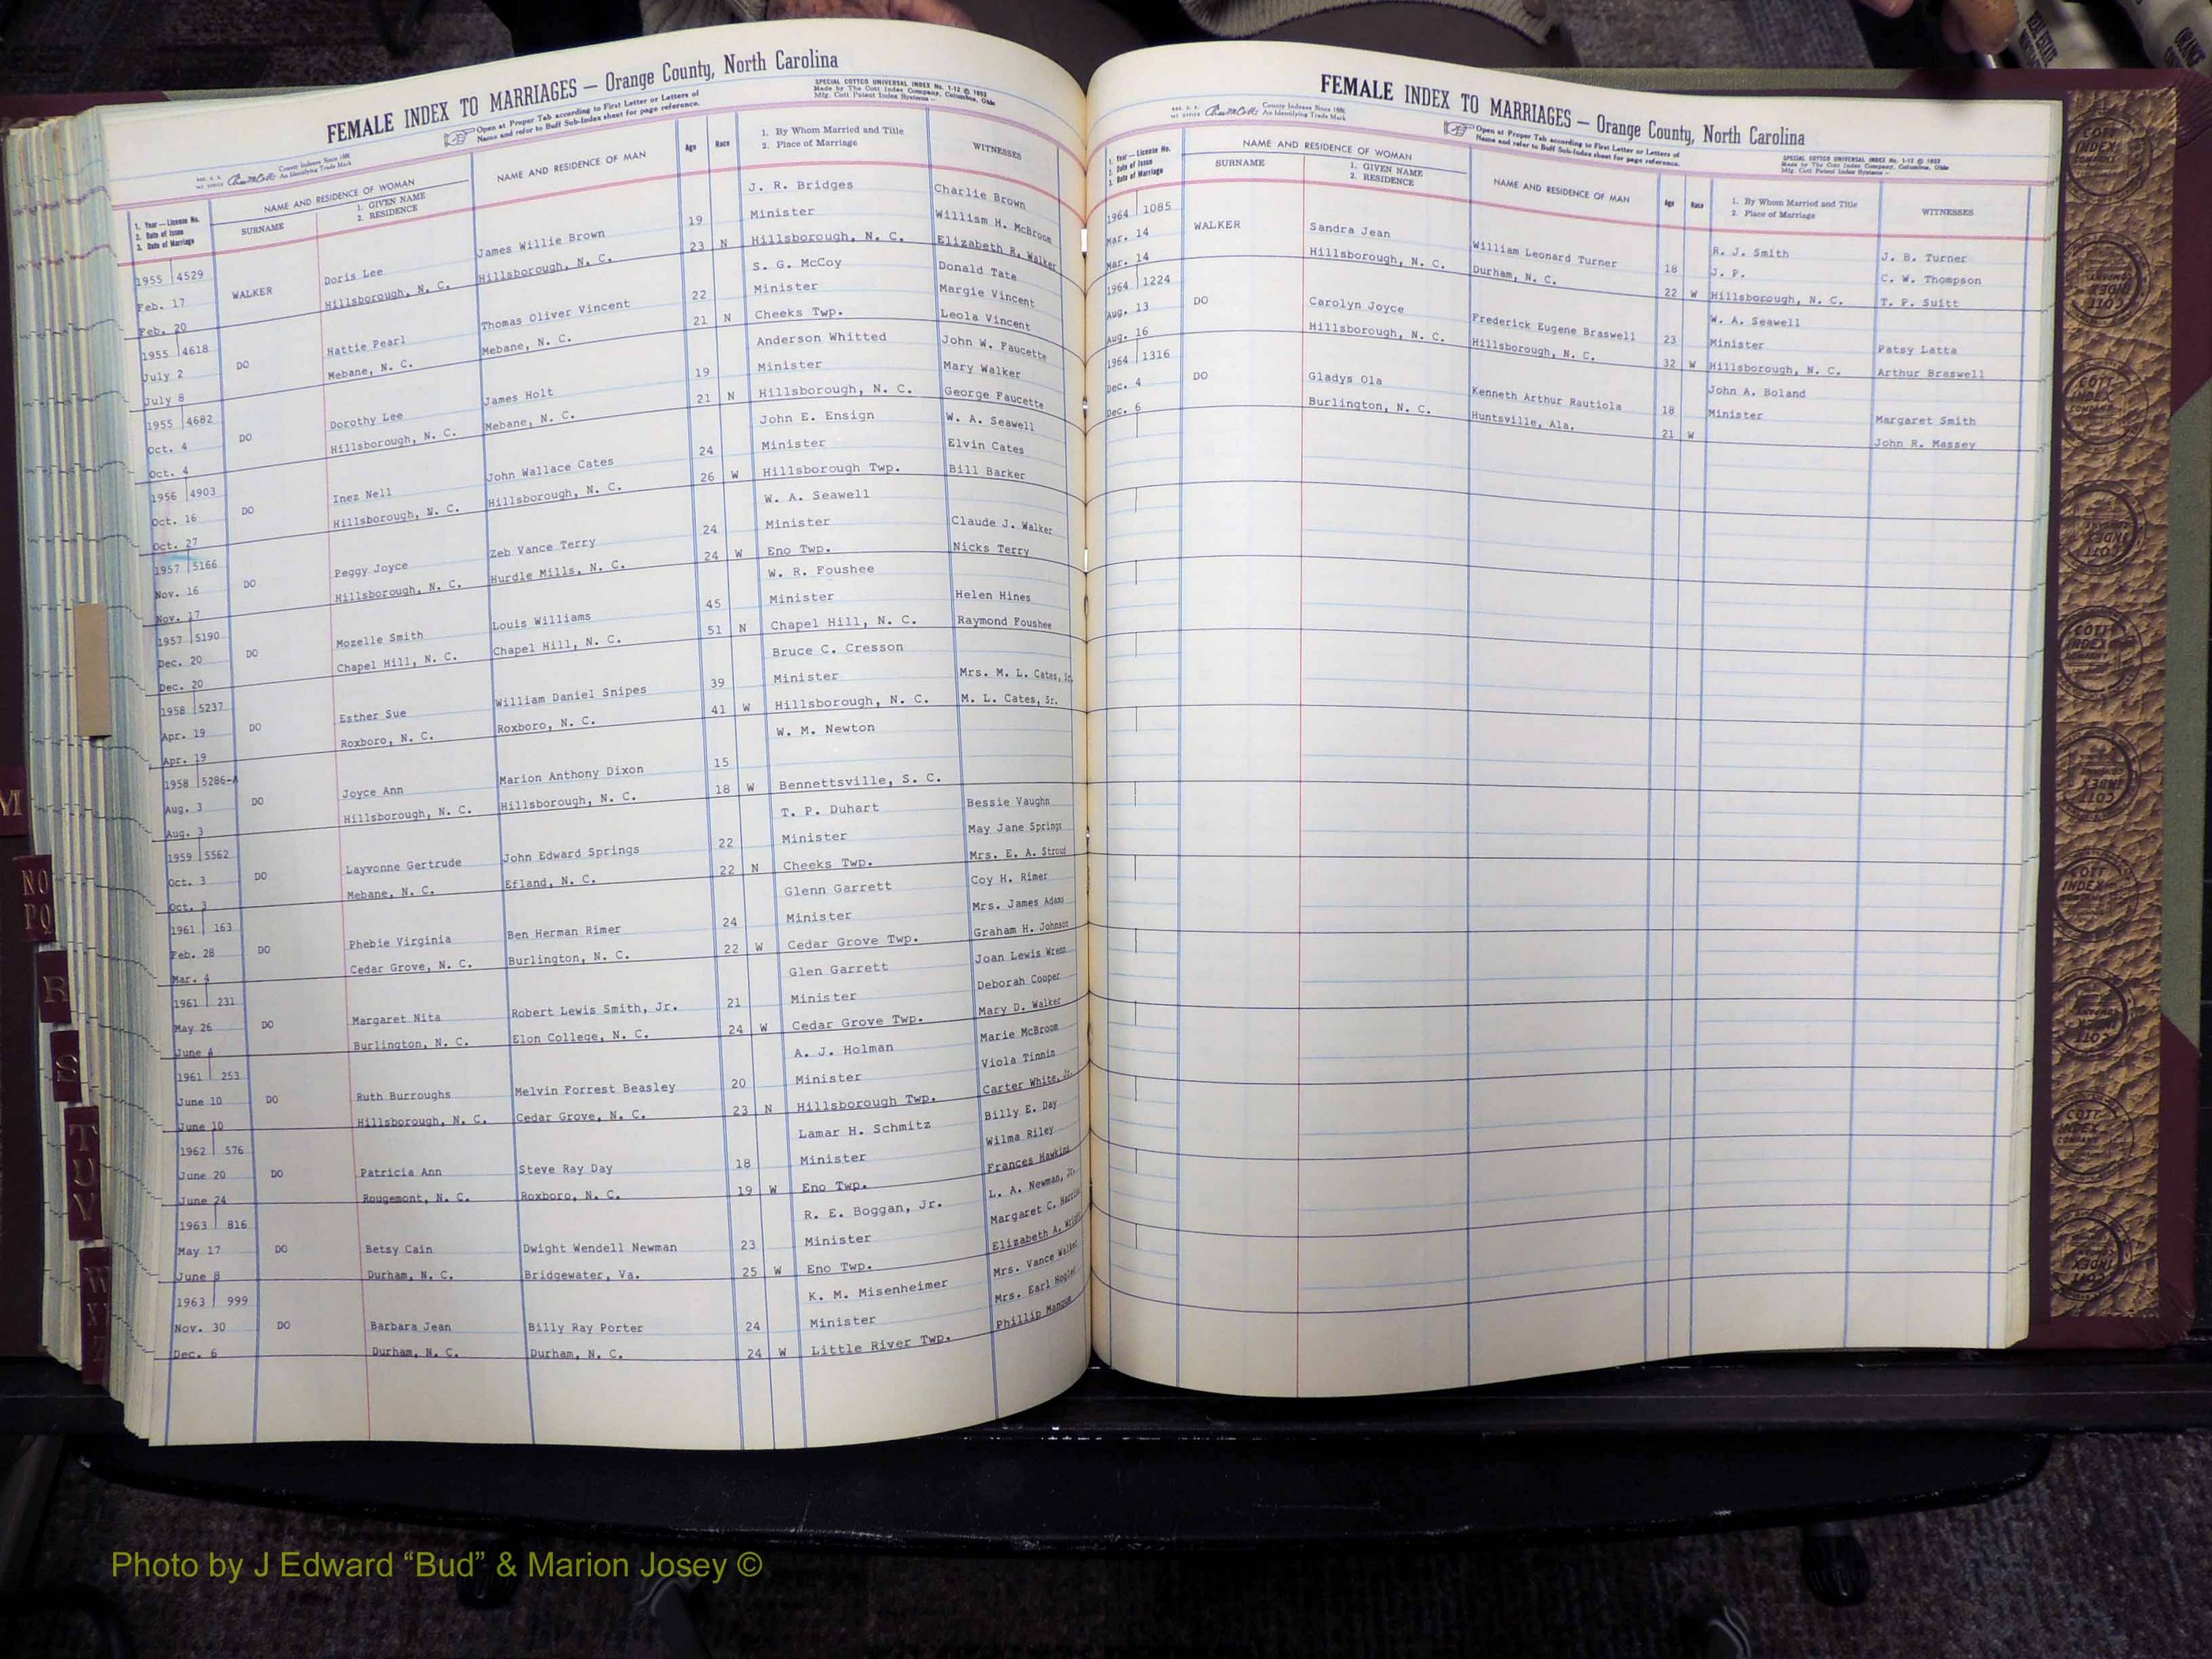 FEMALE INDEX TO MARRIAGES — Orange County, North Carolina
Open at Proper Tab according to First Letter or Letters of
Name and refer to Buff Sub-Index sheet for page reference.
SPECIAL COTTCO UNIVERSAL INDEX No. 1-12 © 1952
Made by The Cott Index Company, Columbus, Ohio
Mfg. Cott Patent Index Systems
County Indexes Since 1888
An Identifying Trade Mark
1. Year — License No.
2. Date of Issue
3. Date of Marriage
NAME AND RESIDENCE OF WOMAN
SURNAME
1. GIVEN NAME
2. RESIDENCE
NAME AND RESIDENCE OF MAN
Age
Race
1. By Whom Married and Title
2. Place of Marriage
WITNESSES
1955 4529 WALKER Doris Lee James Willie Brown 19 J. R. Bridges Charlie Brown
Feb. 17 Hillsborough, N. C. Hillsborough, N. C. 23 N Minister William H. McBroom
Feb. 20 Hillsborough, N. C. Elizabeth R. Walker
1955 4618 DO Hattie Pearl Thomas Oliver Vincent 22 S. G. McCoy Donald Tate
July 2 Mebane, N. C. Mebane, N. C. 21 N Minister Margie Vincent
July 8 Cheeks Twp. Leola Vincent
1955 4682 DO Dorothy Lee James Holt 19 Anderson Whitted John W. Faucette
Oct. 4 Hillsborough, N. C. Mebane, N. C. 21 N Minister Mary Walker
Oct. 4 Hillsborough, N. C. George Faucette
1956 4903 DO Inez Nell John Wallace Cates 24 John E. Ensign W. A. Seawell
Oct. 16 Hillsborough, N. C. Hillsborough, N. C. 26 W Minister Elvin Cates
Oct. 27 Hillsborough Twp. Bill Barker
1957 5166 DO Peggy Joyce Zeb Vance Terry 24 W. A. Seawell
Nov. 16 Hillsborough, N. C. Hurdle Mills, N. C. 24 W Minister Claude J. Walker
Nov. 17 Eno Twp. Nicks Terry
1957 5190 DO Mozelle Smith Louis Williams 45 W. R. Foushee
Dec. 20 Chapel Hill, N. C. Chapel Hill, N. C. 51 N Minister Helen Hines
Dec. 20 Chapel Hill, N. C. Raymond Foushee
1958 5237 DO Esther Sue William Daniel Snipes 39 Bruce C. Cresson
Apr. 19 Roxboro, N. C. Roxboro, N. C. 41 W Minister Mrs. M. L. Cates, Sr.
Apr. 19 Hillsborough, N. C. M. L. Cates, Sr.
1958 5286-A DO Joyce Ann Marion Anthony Dixon 15 W. M. Newton
Aug. 3 Hillsborough, N. C. Hillsborough, N. C. 18 W
Aug. 3 Bennettsville, S. C.
1959 5562 DO Layvonne Gertrude John Edward Springs 22 T. P. Duhart Bessie Vaughn
Oct. 3 Mebane, N. C. Efland, N. C. 22 N Minister May Jane Springs
Oct. 3 Cheeks Twp. Mrs. E. A. Stroud
1961 163 DO Phebie Virginia Ben Herman Rimer 24 Glenn Garrett Coy H. Rimer
Feb. 28 Cedar Grove, N. C. Burlington, N. C. 22 W Minister Mrs. James Adams
Mar. 4 Cedar Grove Twp. Graham H. Johnson
1961 231 DO Margaret Nita Robert Lewis Smith, Jr. 21 Glen Garrett Joan Lewis Wrenn
May 26 Burlington, N. C. Elon College, N. C. 24 W Minister Deborah Cooper
June 4 Cedar Grove Twp. Mary D. Walker
1961 253 DO Ruth Burroughs Melvin Forrest Beasley 20 A. J. Holman Marie McBroom
June 10 Hillsborough, N. C. Cedar Grove, N. C. 23 N Minister Viola Tinnin
June 10 Hillsborough Twp. Carter White, Jr.
1962 576 DO Patricia Ann Steve Ray Day 18 Lamar H. Schmitz Billy E. Day
June 20 Rougemont, N. C. Roxboro, N. C. 19 W Minister Wilma Riley
June 24 Eno Twp. Frances Hawkins
1963 816 DO Betsy Cain Dwight Wendell Newman 23 R. E. Boggan, Jr. L. A. Newman, Jr.
May 17 Durham, N. C. Bridgewater, Va. 25 W Minister Margaret C.
June 8 Eno Twp. Elizabeth A.
1963 999 DO Barbara Jean Billy Ray Porter 24 K. M. Misenheimer Mrs. Vance Walker
Nov. 30 Durham, N. C. Durham, N. C. 24 W Minister Mrs. Earl
Dec. 6 Little River Twp. Phillip Mangum
FEMALE INDEX TO MARRIAGES — Orange County, North Carolina
County Indexes Since 1888
An Identifying Trade Mark
Open at Proper Tab according to First Letter or Letters of
Name and refer to Buff Sub-Index sheet for page reference.
SPECIAL COTTCO UNIVERSAL INDEX No. 1-12 © 1952
Made by The Cott Index Company, Columbus, Ohio
Mfg. Cott Patent Index Systems
1. Year — License No.
2. Date of Issue
3. Date of Marriage
NAME AND RESIDENCE OF WOMAN
SURNAME
1. GIVEN NAME
2. RESIDENCE
NAME AND RESIDENCE OF MAN
Age
Race
1. By Whom Married and Title
2. Place of Marriage
WITNESSES
1964 1085 WALKER Sandra Jean William Leonard Turner 18 R. J. Smith J. B. Turner
Mar. 14 Hillsborough, N. C. Durham, N. C. 22 W J. P. C. W. Thompson
Mar. 14 Hillsborough, N. C. T. P. Suitt
1964 1224 DO Carolyn Joyce Frederick Eugene Braswell 23 W. A. Seawell
Aug. 13 Hillsborough, N. C. Hillsborough, N. C. 32 W Minister Patsy Latta
Aug. 16 Hillsborough, N. C. Arthur Braswell
1964 1316 DO Gladys Ola Kenneth Arthur Rautiola 18 John A. Boland
Dec. 4 Burlington, N. C. Huntsville, Ala. 21 W Minister Margaret Smith
Dec. 6 John R. Massey
M
NO
PQ
R
S
T
U
V
W
COTT
INDEX
COMPANY
Photo by J Edward “Bud” & Marion Josey ©